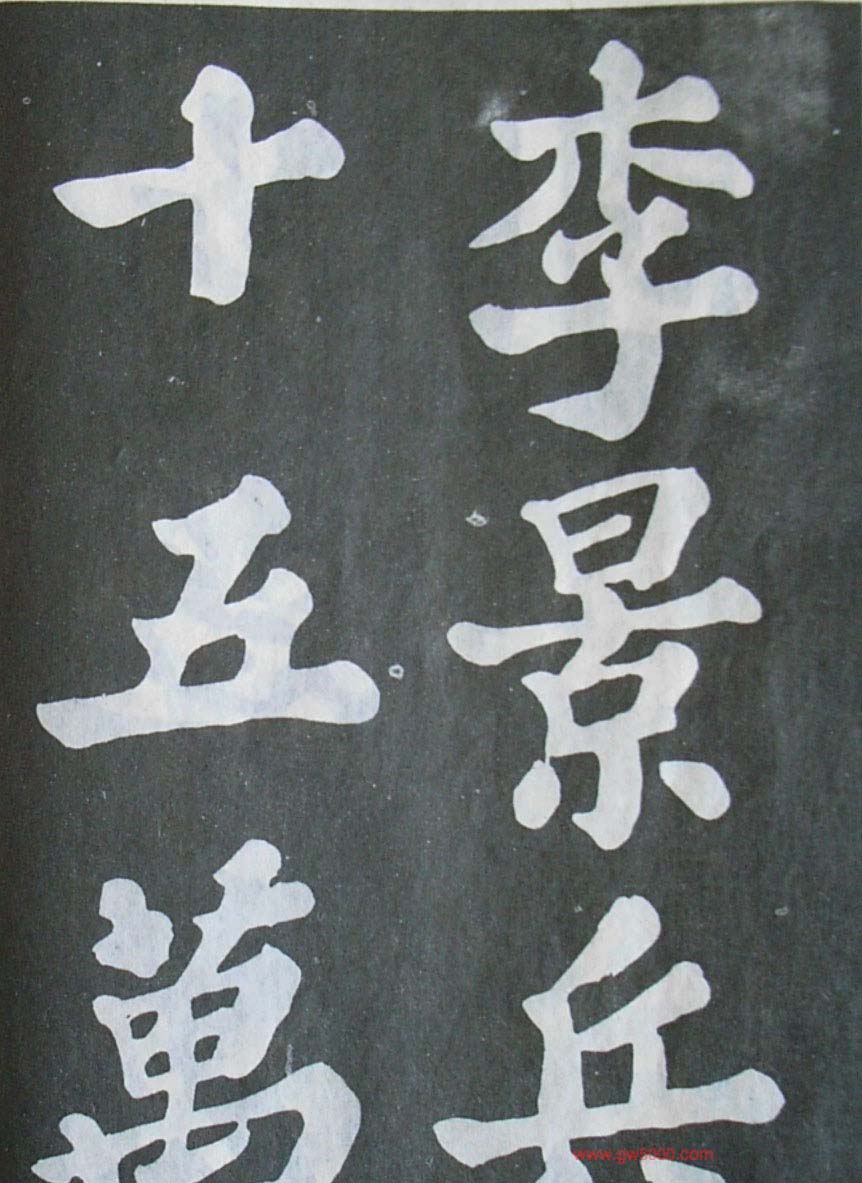 李景兵
十五萬
www.gw5000.com